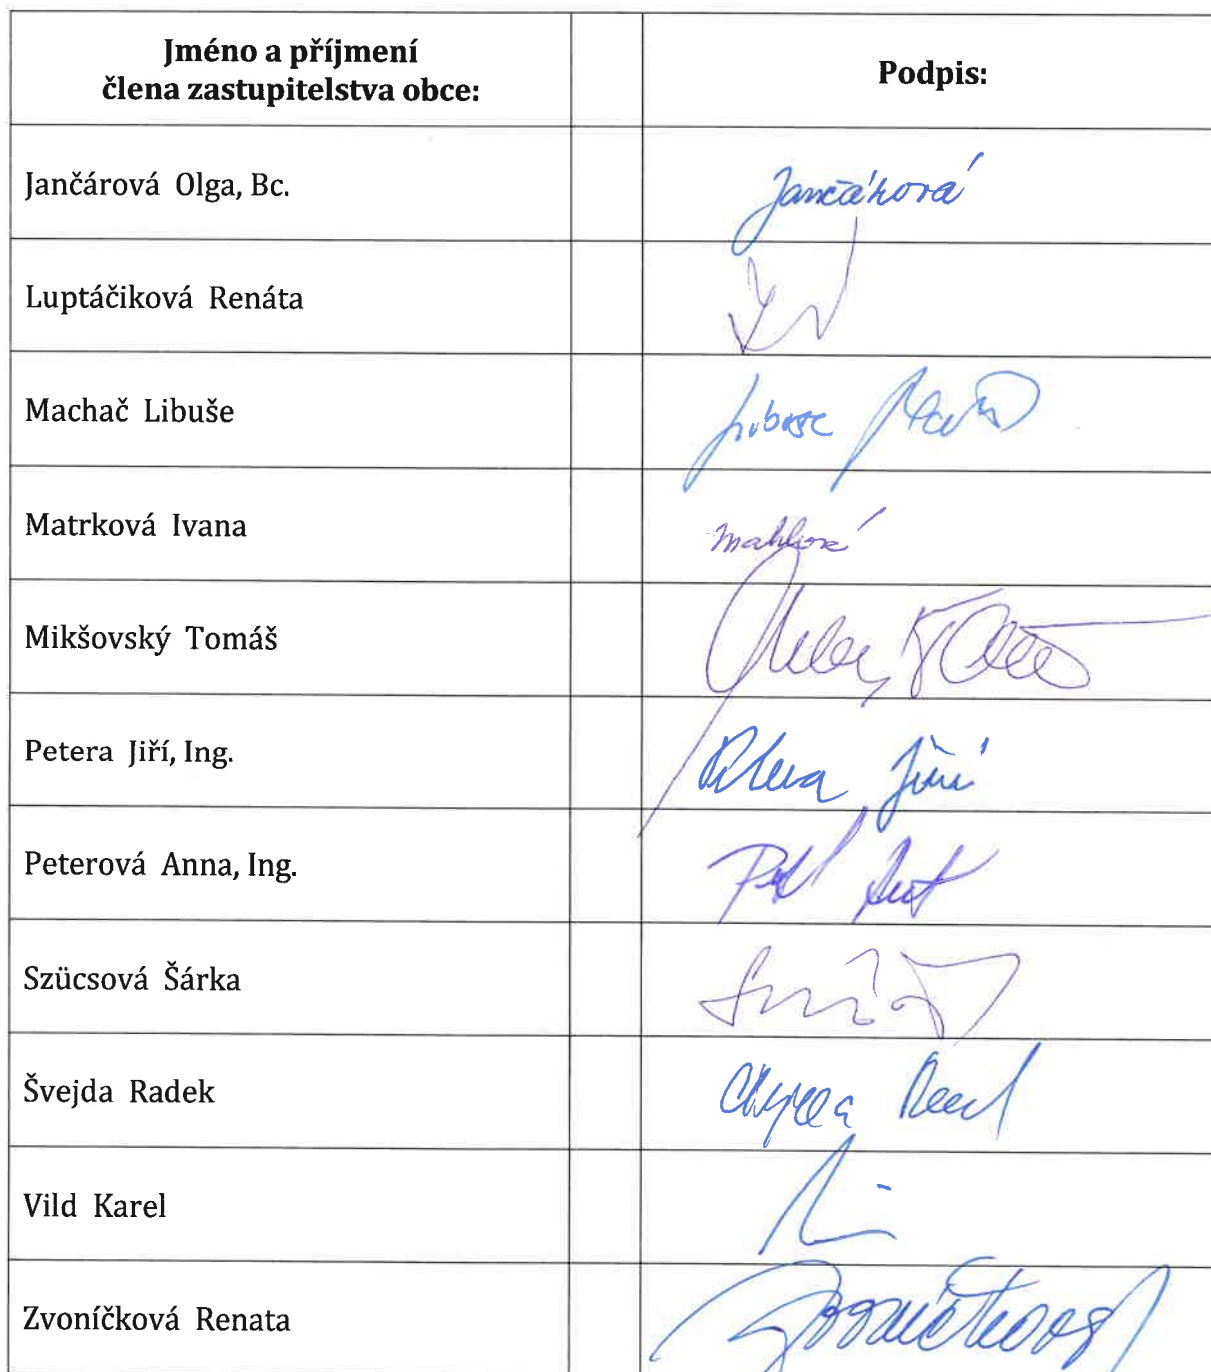 Jméno a příjmení
člena zastupitelstva obce:
Podpis:
Jančárová Olga, Bc.
Jančárová
Luptáčiková Renáta
Machač Libuše
Matrková Ivana
Mikšovský Tomáš
Petera Jiří, Ing.
Petera Jiří
Peterová Anna, Ing.
Szücsová Šárka
Švejda Radek
Vild Karel
Zvoníčková Renata